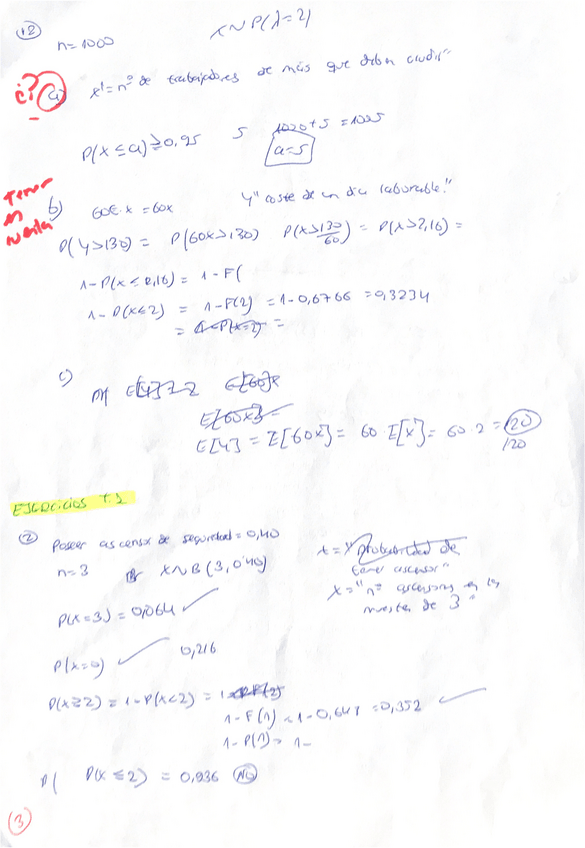 12
X~P(λ=2)
n=1000
¿? a) x'=nº de trabajadores de más que deben acudir"
P(X≤a)≥0,95 5 1020+5=1025
a=5
Tener en cuenta
b) 60€·x=60x Y"coste de un día laborable."
P(Y>130)= P(60x>130) P(x>130/60)=P(x>2,16)=
1-P(x≤2,16)= 1-F(
1-P(x≤2) = 1-F(2)=1-0,6766=0,3234
= 1-P(x=2) =
c) E[60]x
E[60x]=
E[Y] = E[60x]= 60·E[x]= 60·2=120
120
EJERCICIOS T.2
2 Poseer ascensor de seguridad=0,40
n=3 X~B(3,0'40)
x="probabilidad de tener ascensor"
x="nº ascensores en la muestra de 3"
P(X=3)=0,064 ✓
P(x=0) ✓ 0,216
P(x≥2)=1-P(x<2)=
1-F(1)=1-0,648=0,352 ✓
1-P(1)= 1-
P( P(x≤2) = 0,936 NO
3